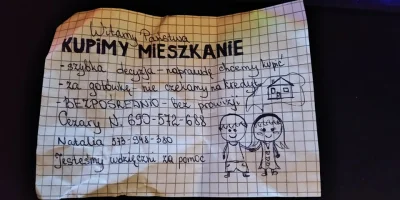 Witamy Państwa
KUPIMY MIESZKANIE
- szybka decyzja - naprawdę chcemy kupić
- za gotówkę - nie czekamy na kredyt
- BEZPOŚREDNIO - bez prowizji
Cezary N. 690-572-688
Natalia 573-948-380
Jesteśmy wdzięczni za pomoc